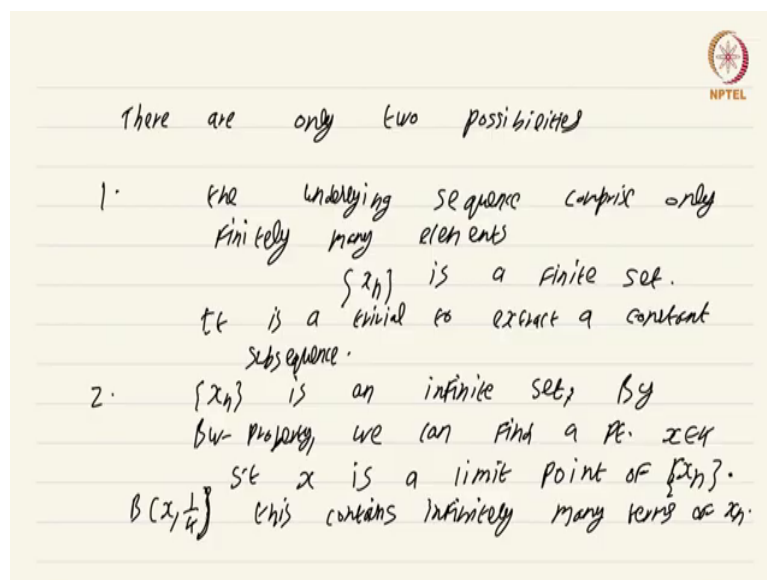 NPTEL
There are only two possibilities
1. the underlying sequence comprix only
Finitely many elements
{xn} is a finite set.
It is a trivial to extract a constant
subsequence.
2. {xn} is an infinite set, By
BW- Property, we can find a pt. x∈K
s.t x is a limit point of {xn}.
B(x,1/k) this contains infinitely many terms of xn.